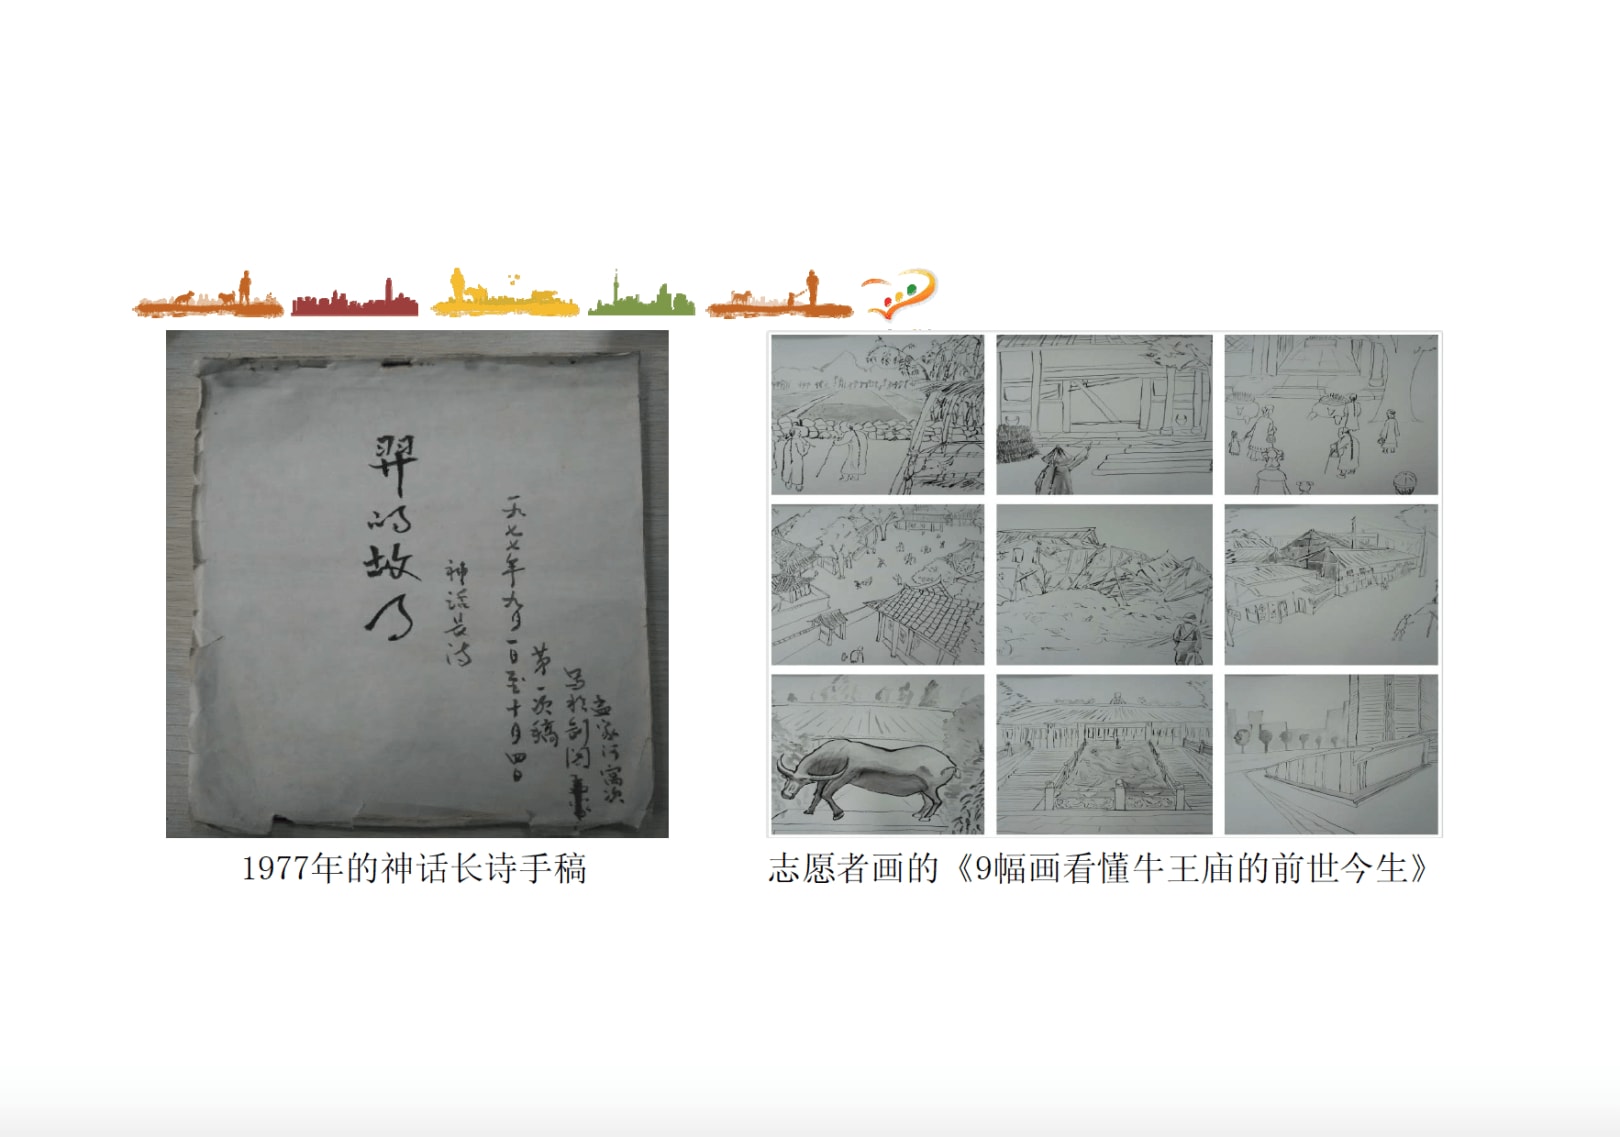 羿的故事
神话长诗
一九七七年九月一日至十月四日
第一次稿
写于剑阁
孟家河寓次
1977年的神话长诗手稿
志愿者画的《9幅画看懂牛王庙的前世今生》